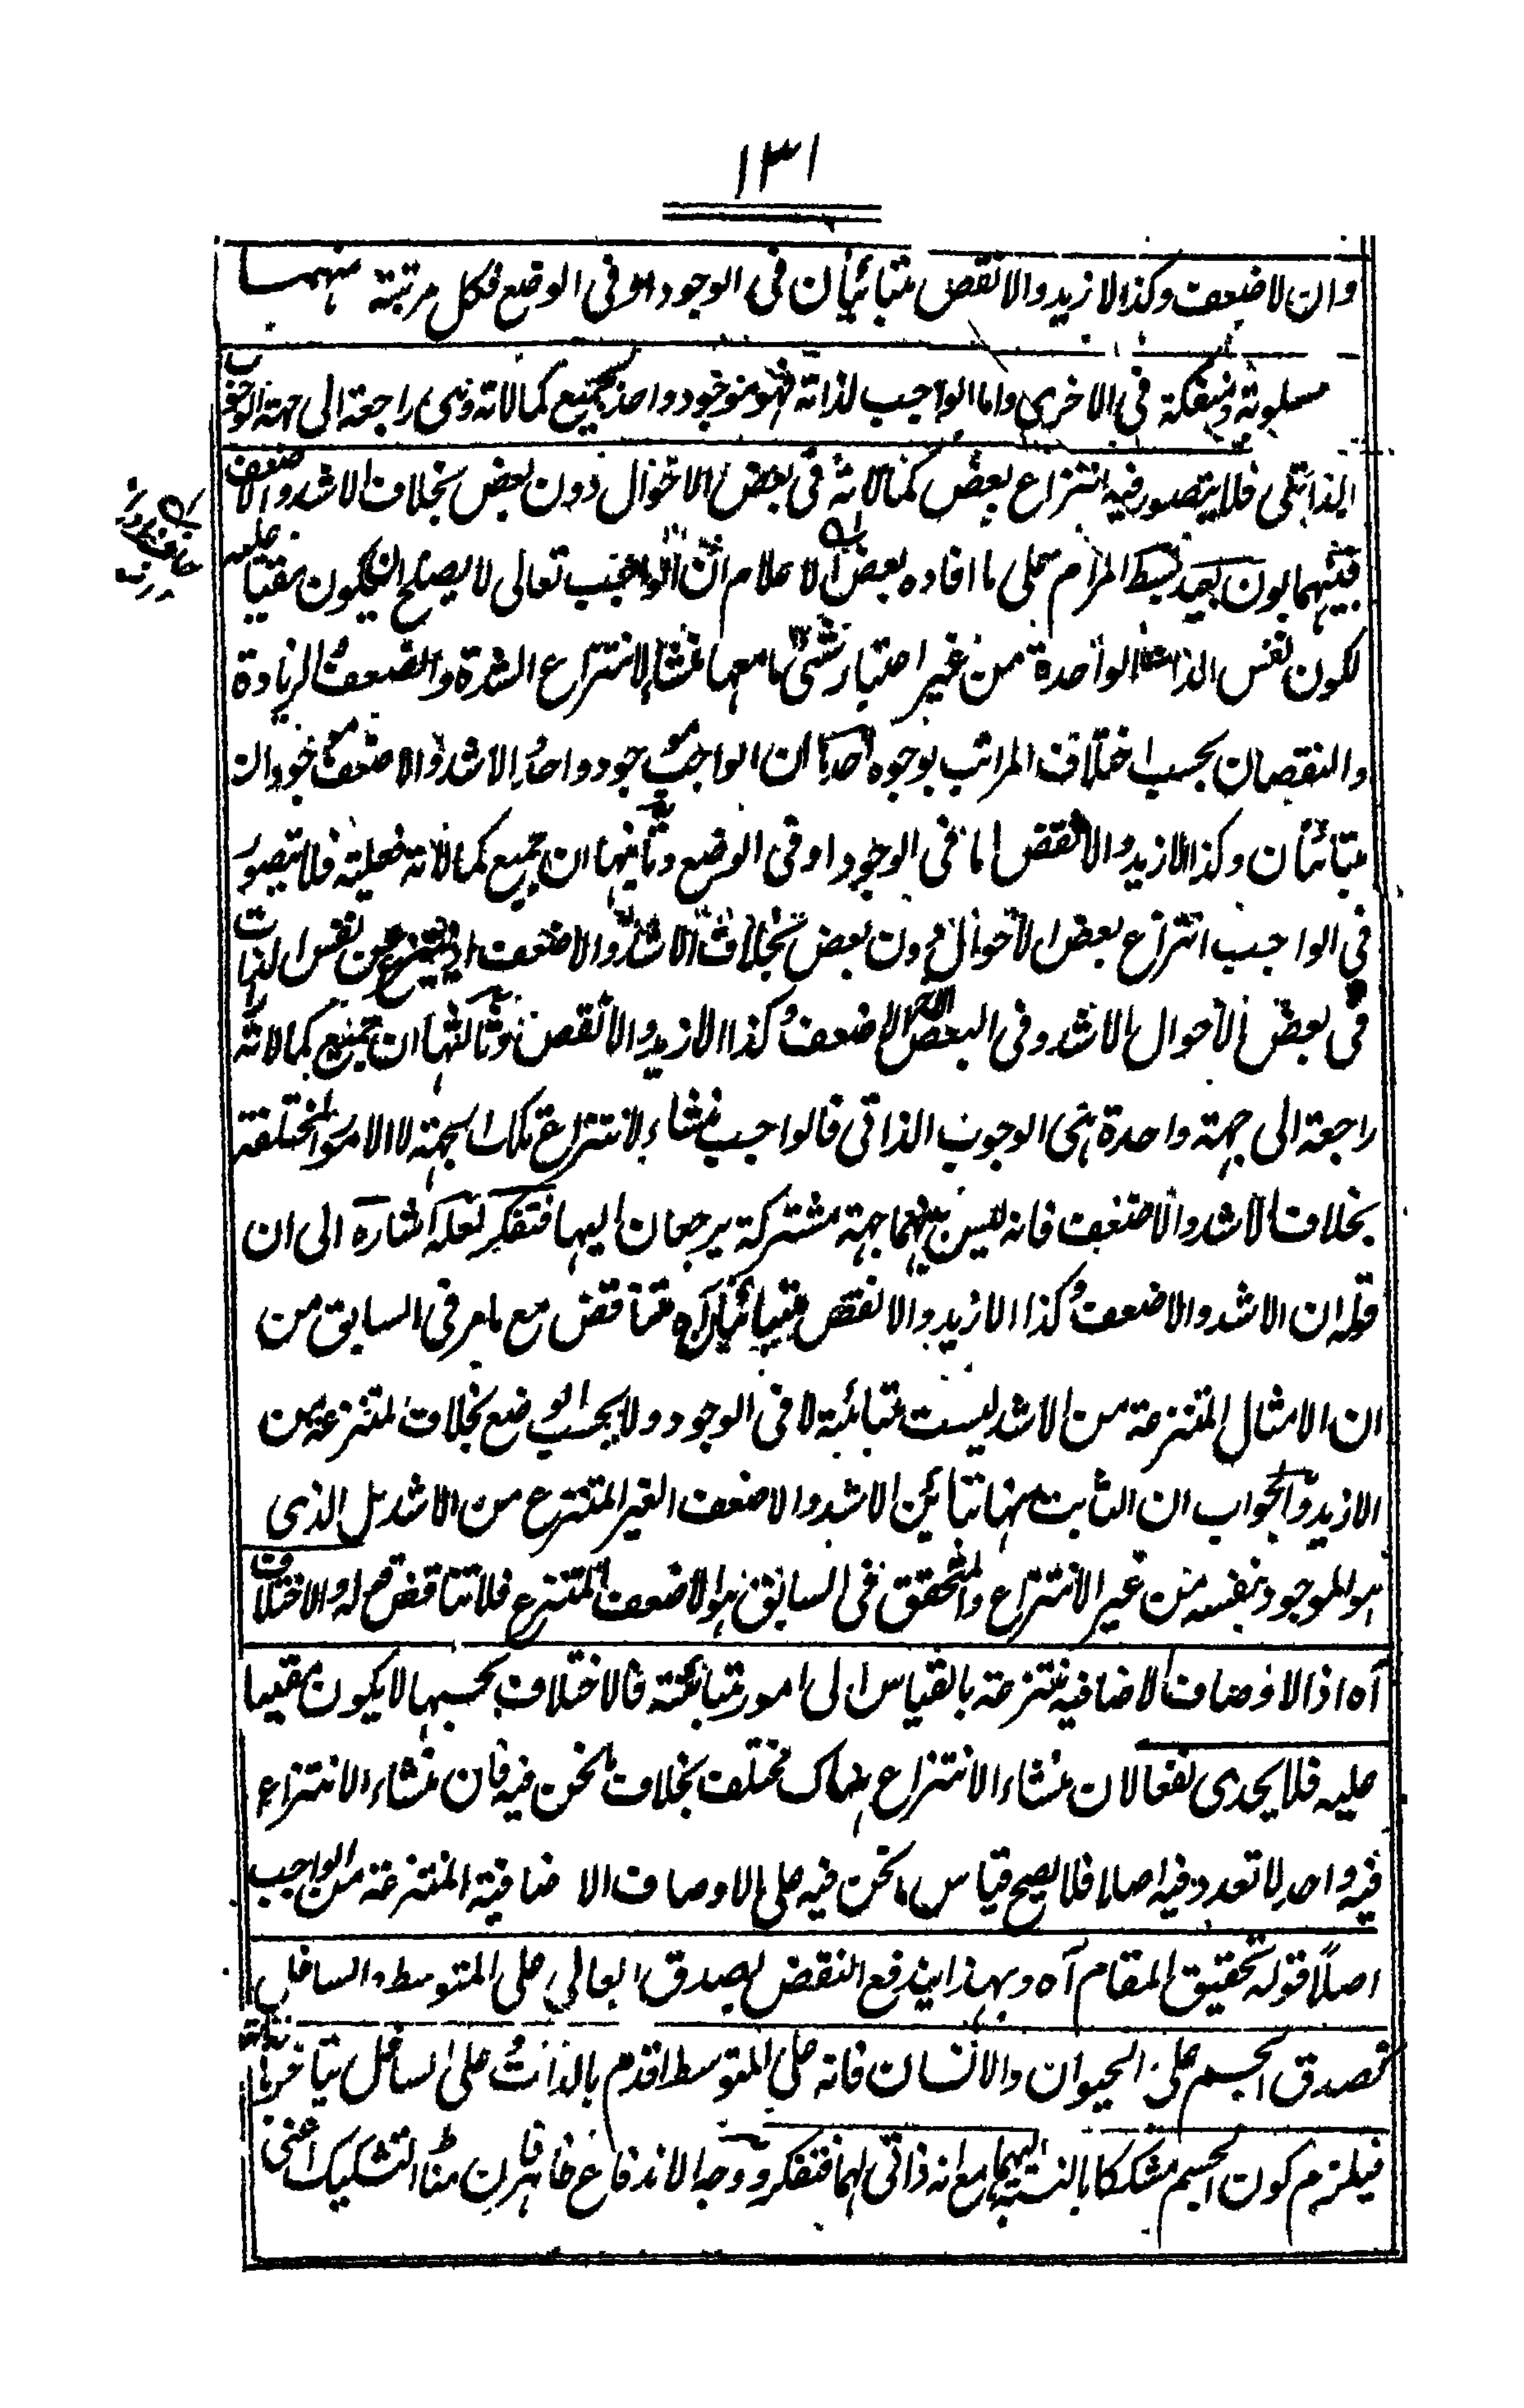 ١٣١
وان لاضعف وكذا الازيد والانقص متبائنان فى الوجود او فى الوضع فكل مرتبة منهما
مسلوبة ومنفكة فى الاخرى واما الواجب لذاته فهو موجود واحد بجميع كمالاته وهى راجعة الى جهة الوجوب
الذاتى فلا يتصور فيه انتزاع بعض كمالاته فى بعض الاحوال دون بعض بخلاف الاشد والاضعف
فبينهما بون بعيد بسط المرام على ما افاده بعض الاعلام ان الواجب تعالى لا يصلح ان يكون مقيسا عليه
لكون نفس الذات الواحدة من غير اعتبار شئ ما معها منشأ لانتزاع الشدة والضعف والزيادة
والنقصان بحسب اختلاف المراتب بوجوه احدها ان الواجب موجود واحد والاشد والاضعف موجودان
متبائنان وكذا الازيد والانقص اما فى الوجود او فى الوضع وثانيها ان جميع كمالاته فعلية فلا يتصور
فى الواجب انتزاع بعض الاحوال دون بعض بخلاف الاشد والاضعف اذ ينتزع عن نفس الذات
فى بعض الاحوال الاشد وفى البعض الاخر الاضعف وكذا الازيد والانقص وثالثها ان جميع كمالاته
راجعة الى جهة واحدة هى الوجوب الذاتى فالواجب منشاء لانتزاع تلك الجهة لا الامور المختلفة
بخلاف الاشد والاضعف فانه ليس بينهما جهة مشتركة يرجعان اليها فتفكر لعله اشارة الى ان
قوله ان الاشد والاضعف وكذا الازيد والانقص متبائنان آه متناقض مع ما مر فى السابق من
ان الامثال المنتزعة من الاشد ليست متبائنة لا فى الوجود ولا بحسب الوضع بخلاف المنتزعة من
الازيد والجواب ان الثابت منها تبائن الاشد والاضعف الغير المنتزع من الاشد بل الذى
هو الموجود بنفسه من غير الانتزاع والمتحقق فى السابق هو الاضعف المنتزع فلا تناقض قوله والاختلاف
آه اذ الاوصاف الاضافية منتزعة بالقياس الى امور متبائنة فالاختلاف بحسبها لا يكون مقيسا
عليه فلا يجدى نفعا لان منشاء الانتزاع هناك مختلف بخلاف ما نحن فيه فان منشاء الانتزاع
فيه واحد لا تعدد فيه اصلا فلا يصح قياس ما نحن فيه على الاوصاف الاضافية المنتزعة من الواجب
اصلاً قوله تحقيق المقام آه وبهذا يندفع النقض بصدق العالى على المتوسط والسافل
كصدق الجسم على الحيوان والانسان فانه على المتوسط اقدم بالذات وعلى السافل متاخر بالذات
فيلزم كون الجسم مشككا بالنسبة اليهما مع انه ذاتى لهما فتفكر ووجه الاندفاع ظاهر فان مناط التشكيك اعنى